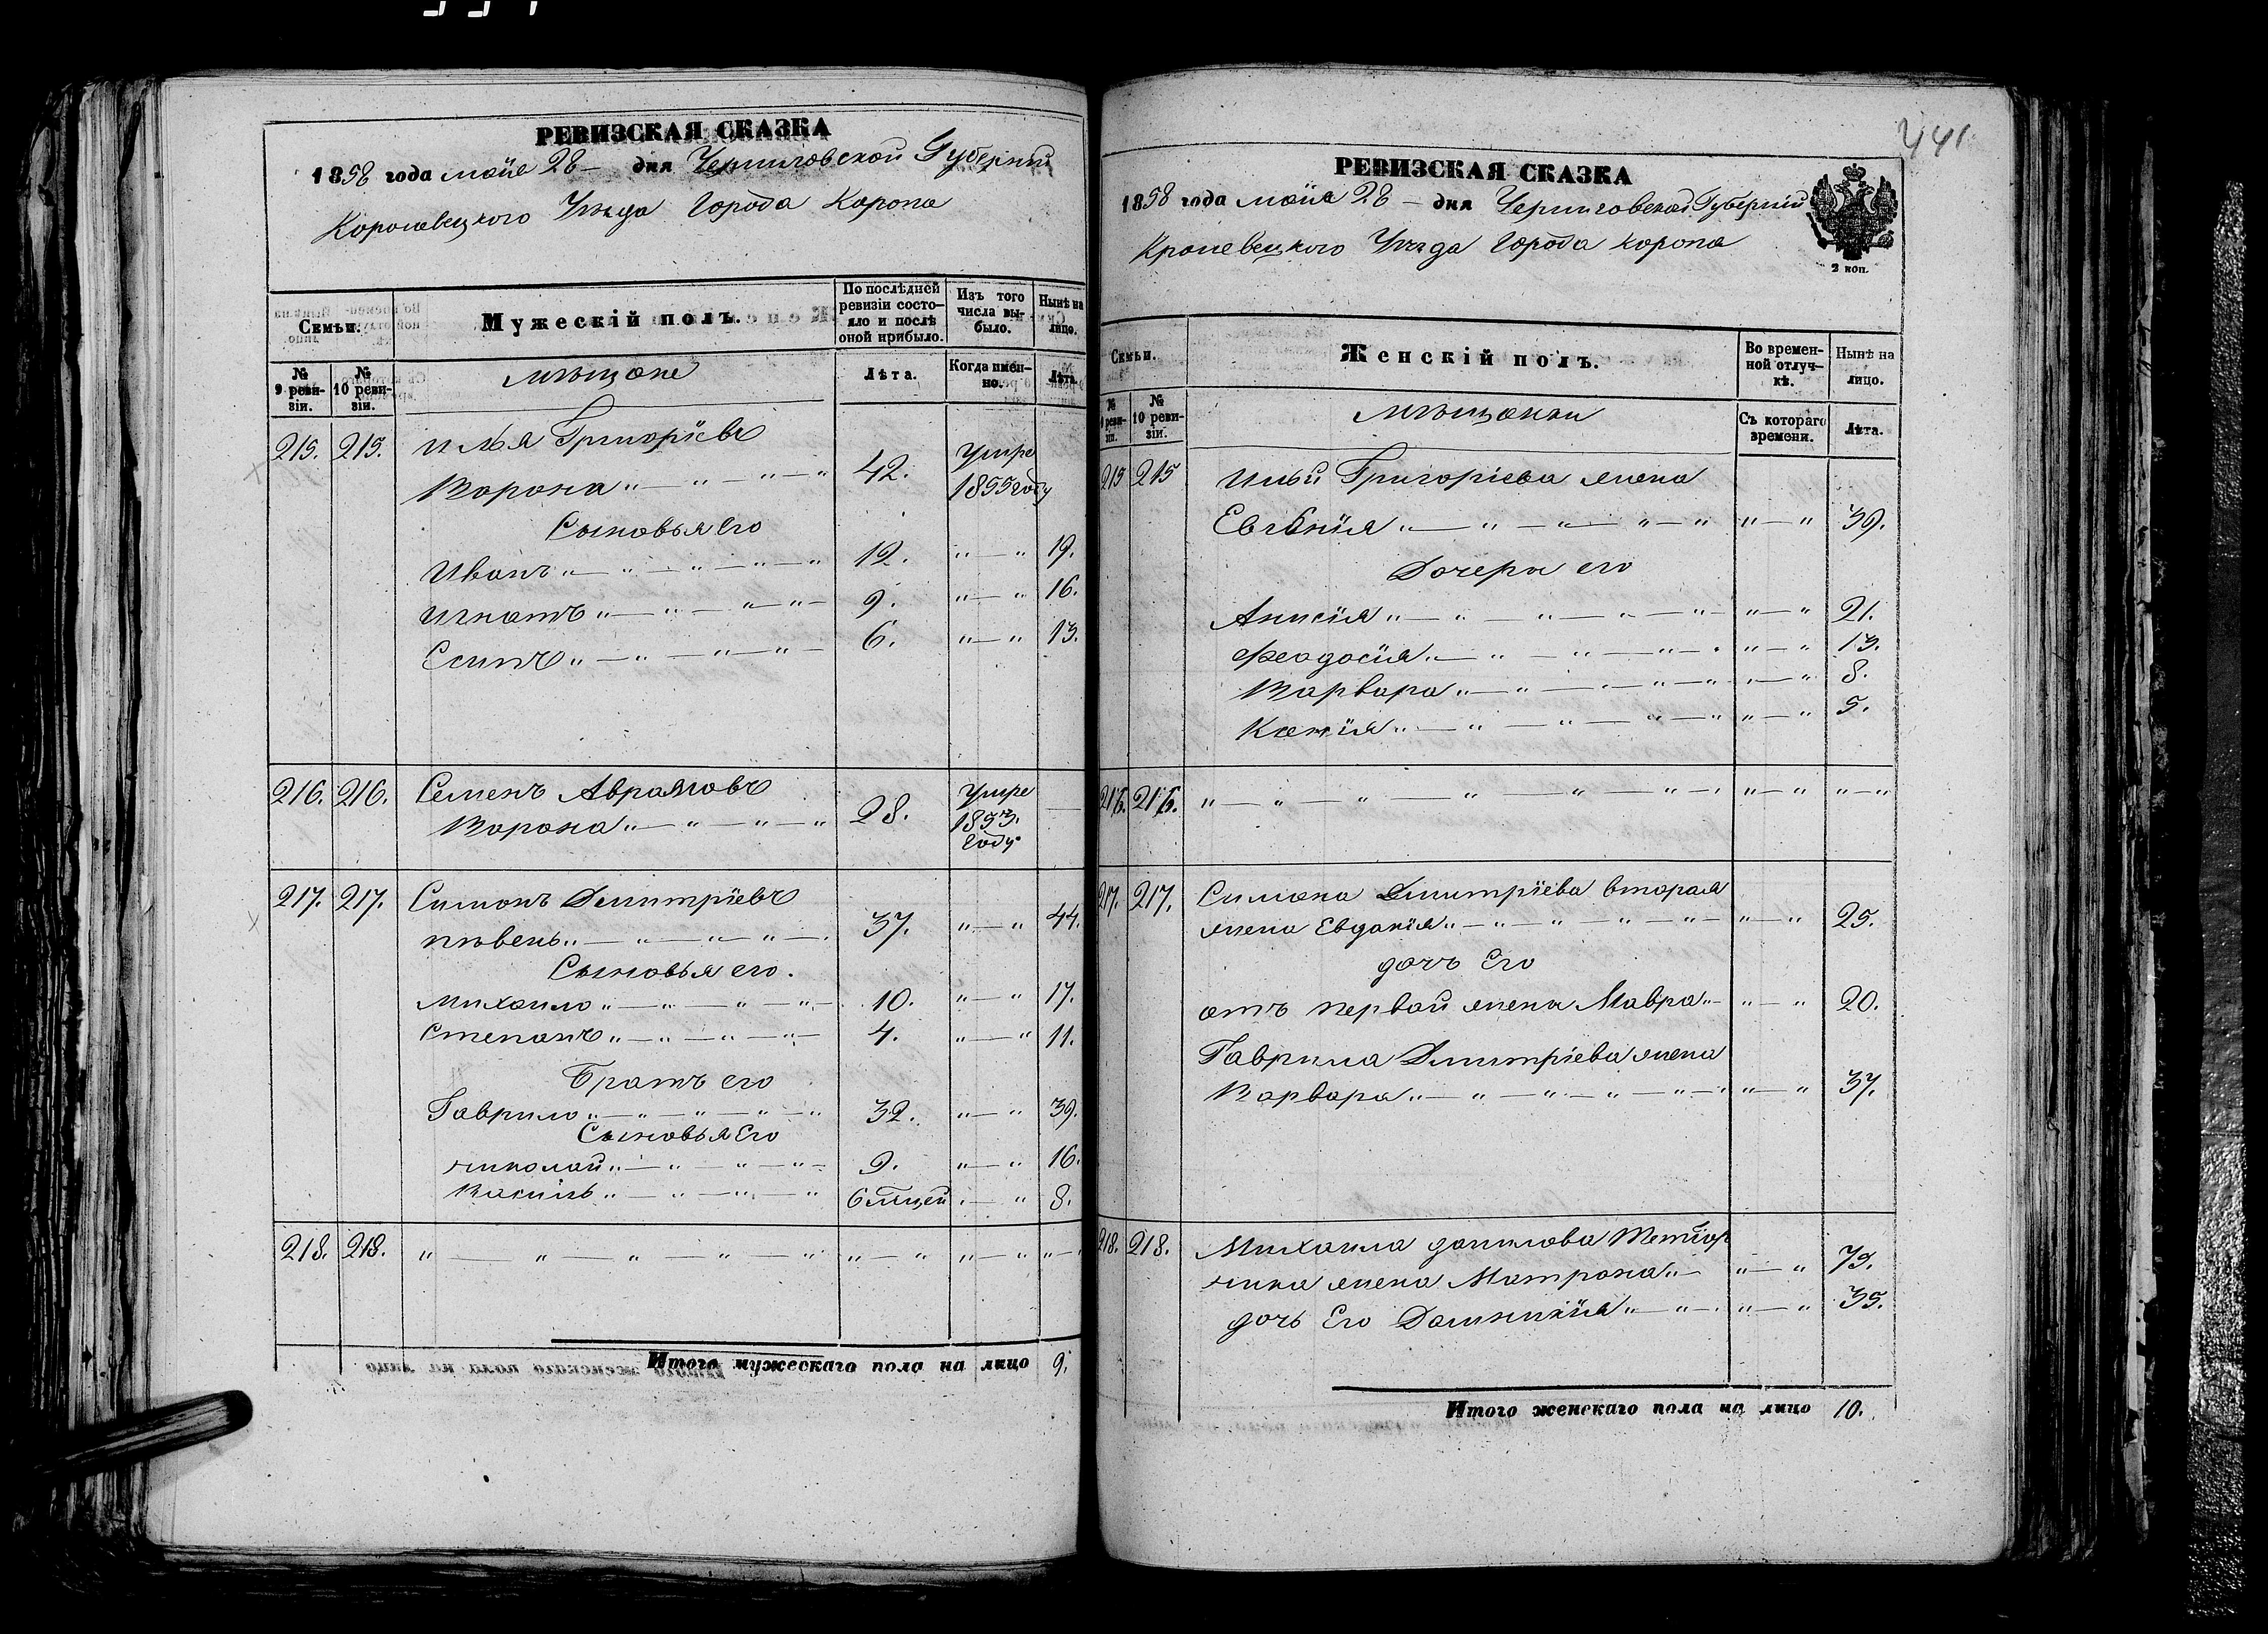 441
РЕВИЗСКАЯ СКАЗКА
1858 года маiя 28 — дня Черниговской Губернiи
Королевецкого Уѣзда Города Коропа
Семьи.
Мужескiй полъ.
По послѣдней ревизiи состояло и послѣ оной прибыло.
Изъ того числа выбыло.
Нынѣ на лицо.
№ 9 ревизiи.
№ 10 ревизiи.
мѣщане
Лѣта.
Когда именно.
Лѣта.
215. 215. Илья Григорiевъ
Ворона 42. Умре 1855 году
Сыновья его
Иванъ 12. 19.
Игнатъ 9. 16.
Есипъ 6. 13.
216. 216. Семенъ Аврамовъ
Ворона 28. Умре 1853. году
217. 217. Симонъ Дмитрiевъ
пѣвень 37. 44.
Сыновья его.
Михаило 10. 17.
Степанъ 4. 11.
Братъ его
Гаврило 32. 39.
Сыновья Его
николай 9. 16.
Василь 6 мцей 8.
218. 218.
Итого мужескаго пола на лицо 9.
РЕВИЗСКАЯ СКАЗКА
1858 года маiя 28 — дня Черниговской Губернiи
Кролевецкого Уѣзда Города коропа
2 коп.
Семьи.
Женскiй полъ.
Во временной отлучкѣ.
Нынѣ на лицо.
№ 9 ревизiи.
№ 10 ревизiи.
мѣщанки
Съ котораго времени.
Лѣта.
215 215 Ильи Григорiева жена
Евгенiя 39.
Дочери его
Анисiя 21.
Феодосiя 13.
Варвара 8.
Ксенiя 5.
216. 216.
217. 217. Симона Дмитрiева вторая
жена Евдокiя 25.
дочь Его
отъ первой жены Мавра 20.
Гаврила Дмитрiева жена
Варвара 37.
218. 218. Михаила данилова
жена Матрона 79.
дочь Его 35.
Итого женскаго пола на лицо 10.